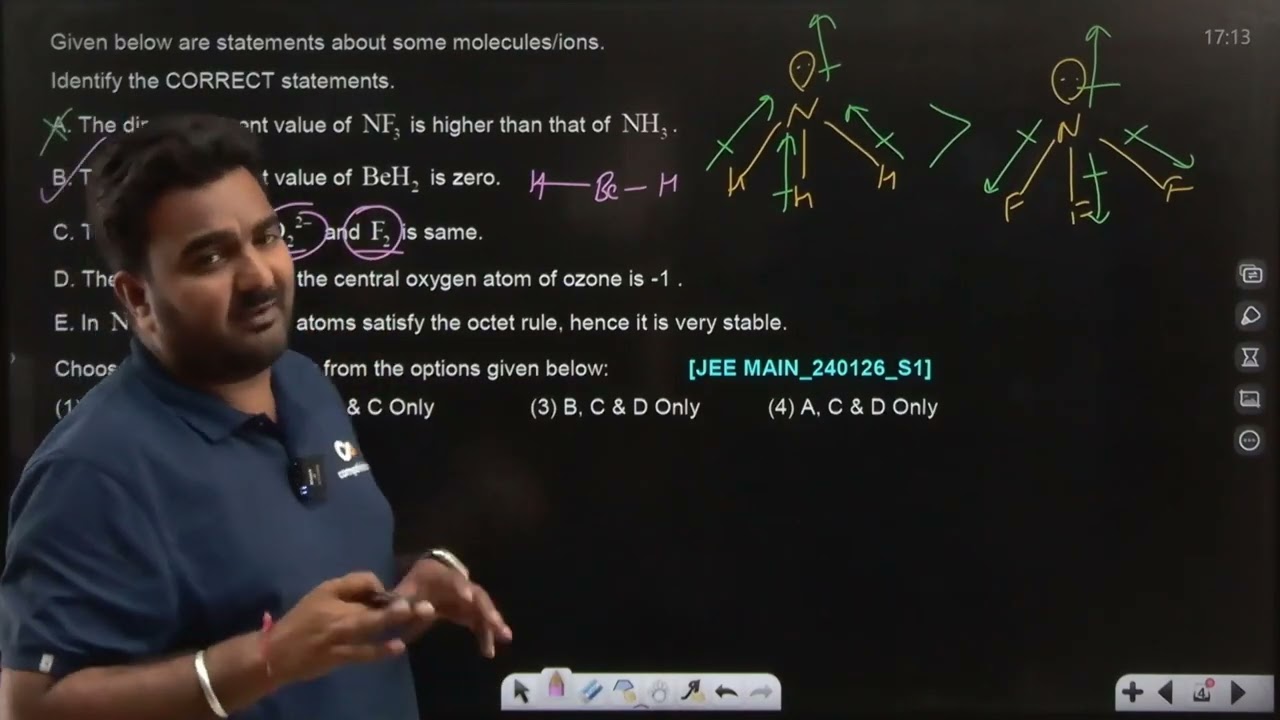 Given below are statements about some molecules/ions.
17:13
Identify the CORRECT statements.
A. The value of NF3 is higher than that of NH3.
B. value of BeH2 is zero.
H Be H
C. and F2 is same.
D. The the central oxygen atom of ozone is -1 .
E. In N atoms satisfy the octet rule, hence it is very stable.
from the options given below:
[JEE MAIN_240126_S1]
& C Only
(3) B, C & D Only
(4) A, C & D Only
N
H H H
>
N
F F F
4